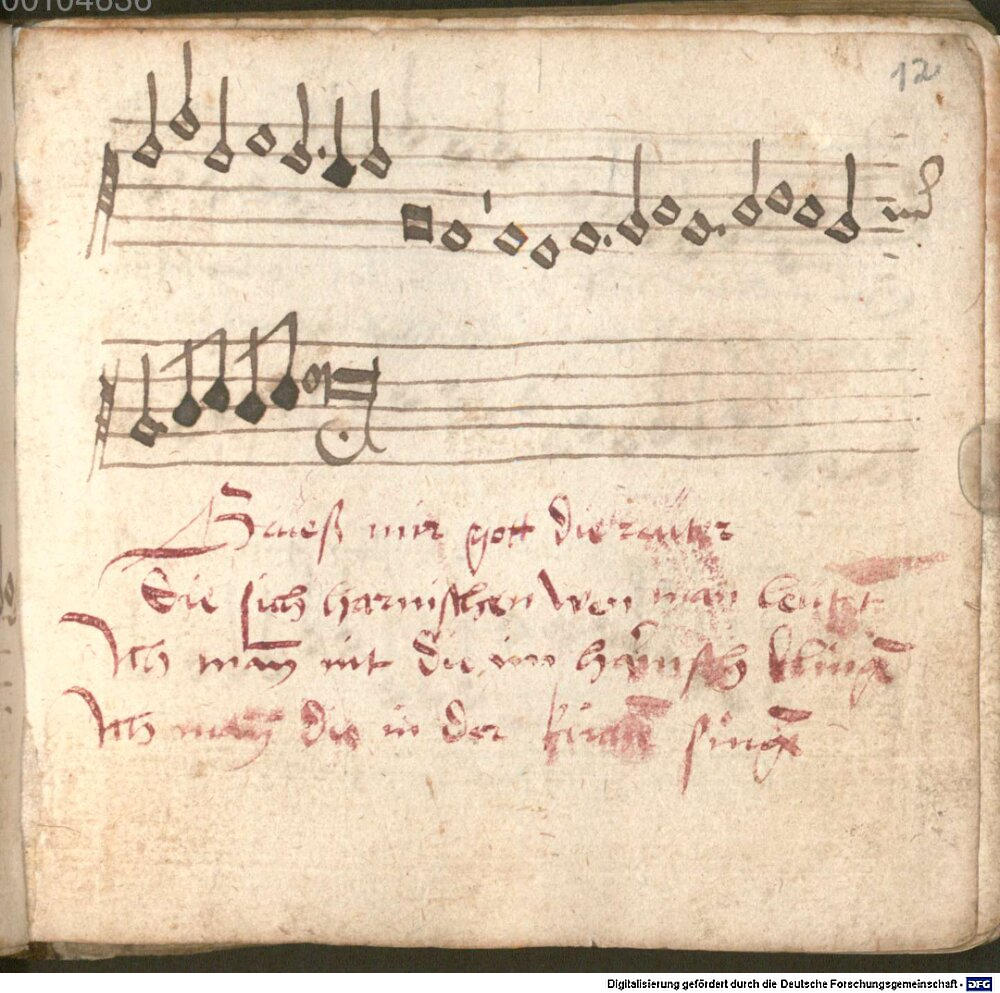 00104636
12
Grueß mir gott die reuter
Die sich harnischen wen man leuttet
Ich main nit die im harnisch kling
Ich main die in der kirch sing
Digitalisierung gefördert durch die Deutsche Forschungsgemeinschaft - DFG